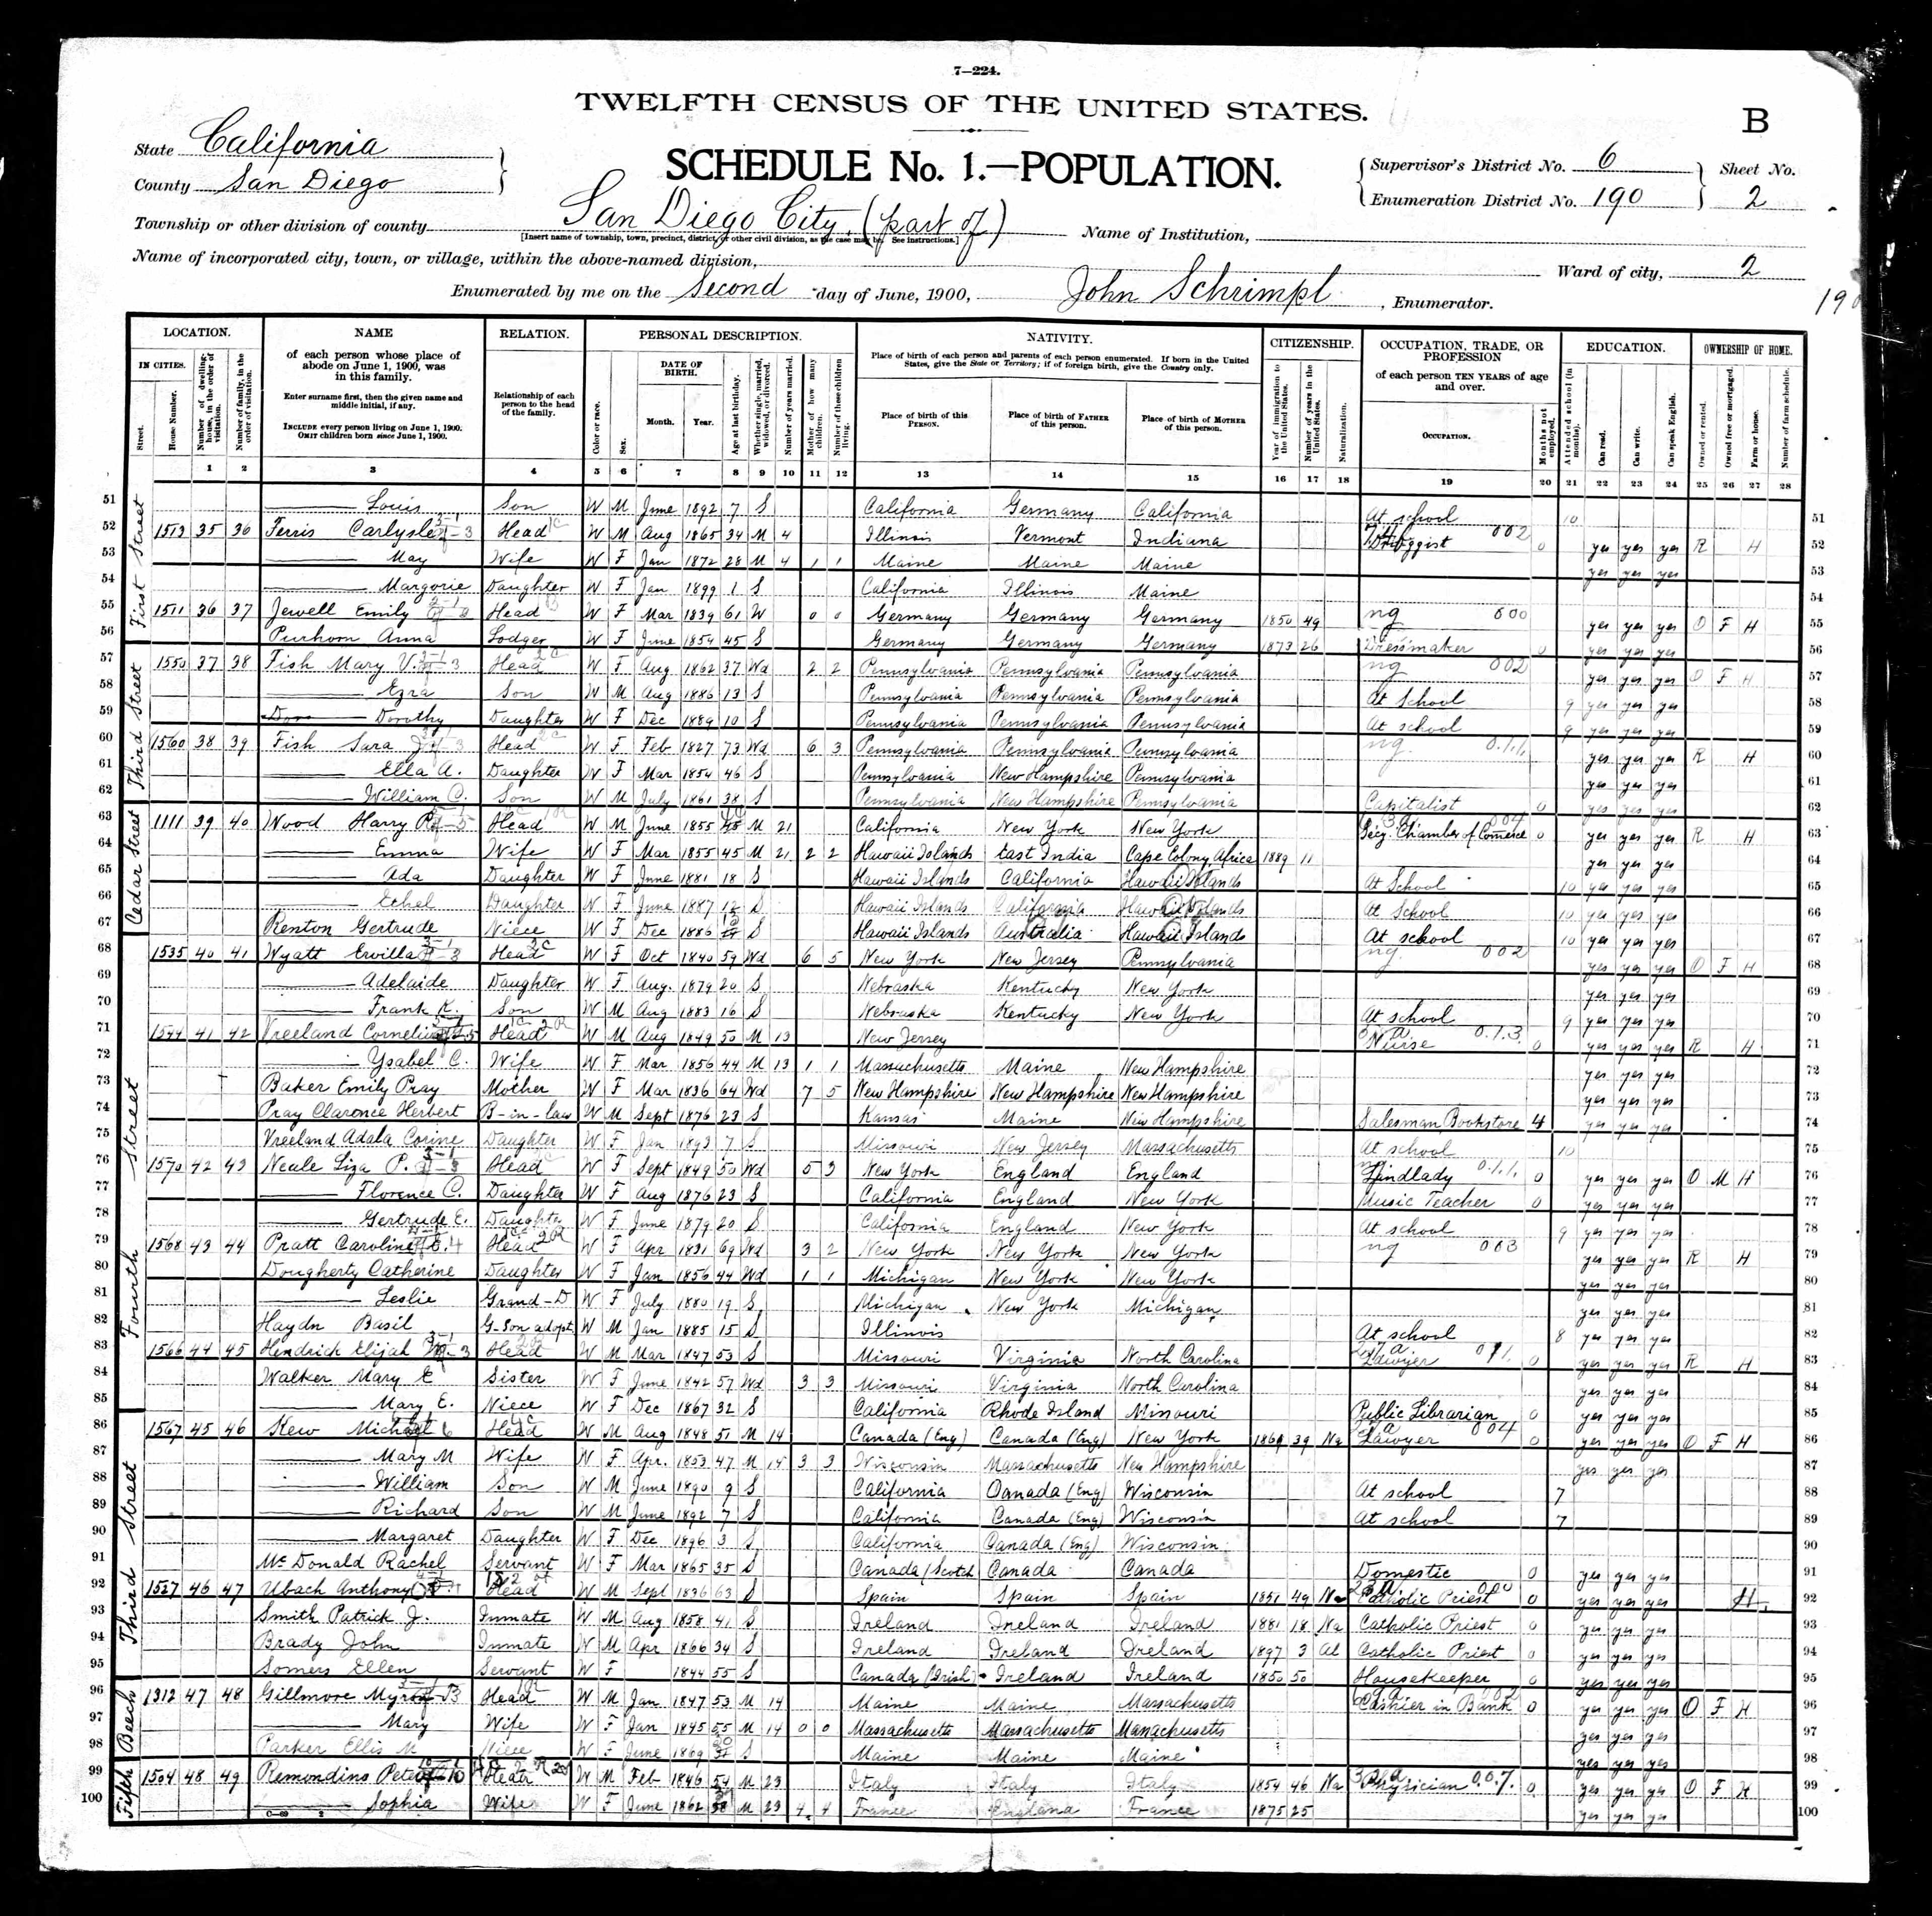 7—224.
TWELFTH CENSUS OF THE UNITED STATES.
B
State California
County San Diego
SCHEDULE No. 1.—POPULATION.
Supervisor's District No. 6
Enumeration District No. 190
Sheet No. 2
Township or other division of county San Diego City (part of)
[Insert name of township, town, precinct, district, or other civil division, as the case may be. See instructions.]
Name of Institution,
Name of incorporated city, town, or village, within the above-named division,
Ward of city, 2
Enumerated by me on the Second day of June, 1900, John Schrimpl, Enumerator.
LOCATION. NAME RELATION. PERSONAL DESCRIPTION. NATIVITY. CITIZENSHIP. OCCUPATION, TRADE, OR PROFESSION EDUCATION. OWNERSHIP OF HOME.
IN CITIES.
Street. House Number. Number of dwelling-house, in the order of visitation. Number of family, in the order of visitation.
of each person whose place of abode on June 1, 1900, was in this family.
Enter surname first, then the given name and middle initial, if any.
INCLUDE every person living on June 1, 1900. OMIT children born since June 1, 1900.
Relationship of each person to the head of the family.
Color or race. Sex. DATE OF BIRTH. Month. Year. Age at last birthday. Whether single, married, widowed, or divorced. Number of years married. Mother of how many children. Number of these children living.
Place of birth of each person and parents of each person enumerated. If born in the United States, give the State or Territory; if of foreign birth, give the Country only.
Place of birth of this PERSON. Place of birth of FATHER of this person. Place of birth of MOTHER of this person.
Year of immigration to the United States. Number of years in the United States. Naturalization.
of each person TEN YEARS of age and over.
OCCUPATION. Months not employed.
Attended school (in months). Can read. Can write. Can speak English.
Owned or rented. Owned free or mortgaged. Farm or house. Number of farm schedule.
1 2 3 4 5 6 7 8 9 10 11 12 13 14 15 16 17 18 19 20 21 22 23 24 25 26 27 28
First Street
51 Louis Son W M June 1892 7 S California Germany California At school 10 51
52 1513 35 36 Ferris Carlysle Head W M Aug 1865 34 M 4 Illinois Vermont Indiana Druggist 0 yes yes yes R H 52
53 May Wife W F Jan 1872 28 M 4 1 1 Maine Maine Maine yes yes yes 53
54 Margorie Daughter W F Jan 1899 1 S California Illinois Maine 54
55 1511 36 37 Jewell Emily Head W F Mar 1839 61 W 0 0 Germany Germany Germany 1850 49 ng 000 yes yes yes O F H 55
56 Purhorn Anna Lodger W F June 1854 45 S Germany Germany Germany 1873 26 Dressmaker 0 yes yes yes 56
Third Street
57 1550 37 38 Fish Mary V. Head W F Aug 1862 37 Wd 2 2 Pennsylvania Pennsylvania Pennsylvania ng 002 yes yes yes O F H 57
58 Ezra Son W M Aug 1886 13 S Pennsylvania Pennsylvania Pennsylvania At School 9 yes yes yes 58
59 Dorothy Daughter W F Dec 1889 10 S Pennsylvania Pennsylvania Pennsylvania At school 9 yes yes yes 59
60 1560 38 39 Fish Sara J Head W F Feb 1827 73 Wd 6 3 Pennsylvania Pennsylvania Pennsylvania ng. yes yes yes R H 60
61 Ella A. Daughter W F Mar 1854 46 S Pennsylvania New Hampshire Pennsylvania yes yes yes 61
62 William C. Son W M July 1861 38 S Pennsylvania New Hampshire Pennsylvania Capitalist 0 yes yes yes 62
Cedar Street
63 1111 39 40 Wood Harry P Head W M June 1855 M 21 California New York New York Chamber of Comerce 0 yes yes yes R H 63
64 Emma Wife W F Mar 1855 45 M 21 2 2 Hawaii Islands East India Cape Colony, Africa 1889 11 yes yes yes 64
65 Ada Daughter W F June 1881 18 S Hawaii Islands California Hawaii Islands At School 10 yes yes yes 65
66 Ethel Daughter W F June 1887 12 S Hawaii Islands California Hawaii Islands At School 10 yes yes yes 66
67 Renton Gertrude Niece W F Dec 1886 13 S Hawaii Islands Australia Hawaii Islands At school 10 yes yes yes 67
Fourth Street
68 1535 40 41 Wyatt Ervilla Head W F Oct 1840 59 Wd 6 5 New York New Jersey Pennsylvania ng 002 yes yes yes O F H 68
69 Adelaide Daughter W F Aug. 1879 20 S Nebraska Kentucky New York yes yes yes 69
70 Frank K. Son W M Aug 1883 16 S Nebraska Kentucky New York At school 9 yes yes yes 70
71 1544 41 42 Vreeland Cornelius Head W M Aug 1849 50 M 13 New Jersey Nurse 0 yes yes yes R H 71
72 Ysabel C. Wife W F Mar 1856 44 M 13 1 1 Massachusetts Maine New Hampshire yes yes yes 72
73 Baker Emily Pray Mother W F Mar 1836 64 Wd 7 5 New Hampshire New Hampshire New Hampshire yes yes yes 73
74 Pray Clarence Herbert B-in-law W M Sept 1876 23 S Kansas Maine New Hampshire Salesman, Bookstore 4 yes yes yes 74
75 Vreeland Adala Corine Daughter W F Jan 1893 7 S Missouri New Jersey Massachusetts At school 10 75
76 1570 42 43 Neale Liza P. Head W F Sept 1849 50 Wd 5 3 New York England England Landlady 0 yes yes yes O M H 76
77 Florence C. Daughter W F Aug 1876 23 S California England New York Music Teacher 0 yes yes yes 77
78 Gertrude E. Daughter W F June 1879 20 S California England New York At school 9 yes yes yes 78
79 1568 43 44 Pratt Caroline Head W F Apr 1831 69 Wd 3 2 New York New York New York ng 003 yes yes yes R H 79
80 Dougherty Catherine Daughter W F Jan 1856 44 Wd 1 1 Michigan New York New York yes yes yes 80
81 Leslie Grand-D W F July 1880 19 S Michigan New York Michigan yes yes yes 81
82 Haydn Basil G-Son adopt W M Jan 1885 15 S Illinois At school 8 yes yes yes 82
83 1566 44 45 Hendrick Elijah Head W M Mar 1847 53 S Missouri Virginia North Carolina Lawyer 0 yes yes yes R H 83
84 Walker Mary E Sister W F June 1842 57 Wd 3 3 Missouri Virginia North Carolina yes yes yes 84
85 Mary E. Niece W F Dec 1867 32 S California Rhode Island Missouri Public Librarian 0 yes yes yes 85
Third Street
86 1567 45 46 Skew Michael Head W M Aug 1848 51 M 14 Canada (Eng) Canada (Eng) New York 39 Na Lawyer 004 0 yes yes yes O F H 86
87 Mary M Wife W F Apr. 1853 47 M 14 3 3 Wisconsin Massachusetts New Hampshire yes yes yes 87
88 William Son W M June 1890 9 S California Canada (Eng) Wisconsin At school 7 88
89 Richard Son W M June 1892 7 S California Canada (Eng) Wisconsin At school 7 89
90 Margaret Daughter W F Dec 1896 3 S California Canada (Eng) Wisconsin 90
91 McDonald Rachel Servant W F Mar 1865 35 S Canada (Scotch Canada Canada Domestic 0 yes yes yes 91
92 1527 46 47 Ubach Anthony Head W M Sept 1836 63 S Spain Spain Spain 1851 49 Na Catholic Priest 0 yes yes yes H 92
93 Smith Patrick J. Inmate W M Aug 1858 41 S Ireland Ireland Ireland 1881 18 Na Catholic Priest 0 yes yes yes 93
94 Brady John Inmate W M Apr 1866 34 S Ireland Ireland Ireland 1897 3 Al Catholic Priest 0 yes yes yes 94
95 Somers Ellen Servant W F 1844 55 S Canada (Irish) Ireland Ireland 1850 50 Housekeeper 0 yes yes yes 95
Beech
96 1312 47 48 Gillmore Myron Head W M Jan 1847 53 M 14 Maine Maine Massachusetts Cashier in Bank 0 yes yes yes O F H 96
97 Mary Wife W F Jan 1845 55 M 14 0 0 Massachusetts Massachusetts Massachusetts yes yes yes 97
98 Parker Ellis M Niece W F June 1869 S Maine Maine Maine yes yes yes 98
Fifth
99 1504 48 49 Remondino Peter Head W M Feb 1846 54 M 23 Italy Italy Italy 1854 46 Na Physician 0 yes yes yes O F H 99
100 Sophia Wife W F June 1862 M 23 4 4 France England France 1875 25 yes yes yes 100